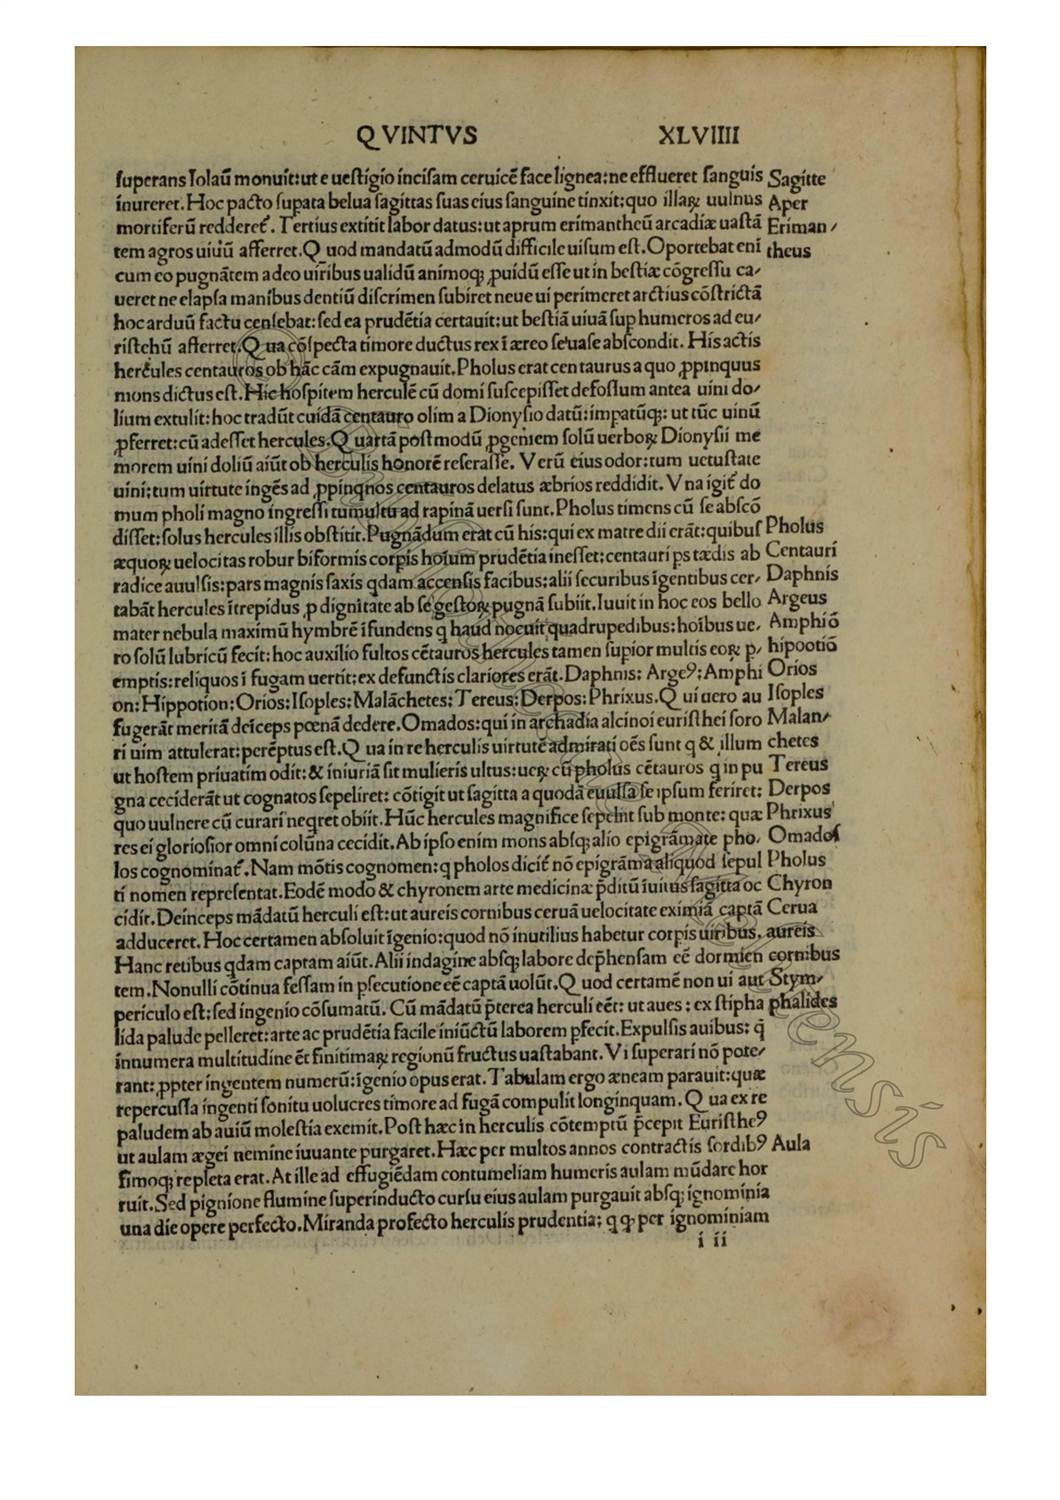 QVINTVS XLVIIII
superans Iolaū monuit: ut e uestigio incisam ceruicē face lignea: ne efflueret sanguis Sagitte
inureret. Hoc pacto supata belua sagittas suas eius sanguine tinxit: quo illaꝝ uulnus Aper
mortiferū redderet̄. Tertius extitit labor datus: ut aprum erimantheū arcadiæ uastā Eriman/
tem agros uiuū afferret. Quod mandatū admodū difficile uisum est. Oportebat eni theus
cum eo pugnātem adeo uiribus ualidū animoqꝫ ꝓuidū esse ut in bestiæ cōgressu ca/
ueret ne elapsa manibus dentiū discrimen subiret neue ui perimeret arctius cōstrictā
hoc arduū factu censebat: sed ea prudētia certauit: ut bestiā uiuā sup humeros ad eu/
risthēū afferret. Qua cōspecta timore ductus rex ī æreo se uase abscondit. His actis
hercules centauros ob hāc cām expugnauit. Pholus erat centaurus a quo ꝓpinquus
mons dictus est. Hic hospitem herculē cū domi suscepisset defossum antea uini do/
lium extulit: hoc tradūt cuidā centauro olim a Dionysio datū: impatūqꝫ: ut tūc uinū
ꝓferret: cū adesset hercules. Quartā postmodū ꝓgeniem solū uerboꝝ Dionysii me
morem uini doliū aiūt ob herculis honorē reserasse. Verū eius odor: tum uetustate
uini: tum uirtute ingēs ad ꝓpinqnos centauros delatus æbrios reddidit. Vna igit̄ do
mum pholi magno ingressi tumultu ad rapinā uersi sunt. Pholus timens cū se abscō
disset: solus hercules illis obstitit. Pugnādum erat cū his: qui ex matre dii erāt: quibus Pholus
æquoꝝ uelocitas robur biformis corpis hoīum prudētia inesset: centauri ps tædis ab Centauri
radice auulsis: pars magnis saxis qdam accensis facibus: alii securibus īgentibus cer/ Daphnis
tabāt hercules ītrepidus ꝓ dignitate ab se gestoꝝ pugnā subiit. Iuuit in hoc eos bello Argeus
mater nebula maximū hymbrē īfundens q haud nocuit quadrupedibus: hoībus ue/ Amphiō
ro solū lubricū fecit: hoc auxilio fultos cētauros hercules tamen supior multis eoꝝ p/ hipootiō
emptis: reliquos ī fugam uertit: ex defunctis clariores erāt. Daphnis: Argeꝰ: Amphi Orios
on: Hippotion: Orios: Isoples: Malāchetes: Tereus: Derpos: Phrixus. Qui uero au Isoples
fugerāt meritā deīceps pœnā dedere. Omados: qui in archadia alcinoi euristhei soro Malan/
ri uim attulerat: perēptus est. Qua in re herculis uirtutē admirati oēs sunt q & illum chetes
ut hostem priuatim odit: & iniuriā sit mulieris ultus: ueꝝ cū pholus cētauros q in pu Tereus
gna ceciderāt ut cognatos sepeliret: cōtigit ut sagitta a quodā euulsa se ipsum feriret: Derpos
quo uulnere cū curari neqret obiit. Hūc hercules magnifice sepelīit sub monte: quæ Phrixus
res ei gloriosior omni colūna cecidit. Ab ipso enim mons absqꝫ alio epigrāmate pho/ Omados
los cognominat̄. Nam mōtis cognomen: q pholos dicit̄ nō epigrāma aliquod sepul Pholus
ti nomen representat. Eodē modo & chyronem arte medicinæ p̄ditū īuitus sagitta oc Chyron
cidit. Deinceps mādatū herculi est: ut aureis cornibus ceruā uelocitate eximiā captā Cerua
adduceret. Hoc certamen absoluit īgenio: quod nō inutilius habetur corpis uiribus. aureis
Hanc retibus qdam captam aiūt. Alii indagine absqꝫ labore dep̄hensam eē dormien cornibus
tem. Nonulli cōtinua fessam in psecutione eē captā uolūt. Quod certamē non ui aut Stym/
periculo est: sed ingenio cōsumatū. Cū mādatū p̄terea herculi eēt: ut aues: ex stipha phalides
lida palude pelleret: arte ac prudētia facile iniūctū laborem pfecit. Expulsis auibus: q̄
innumera multitudine ēt finitimaꝝ regionū fructus uastabant. Vi superari nō pote/
rant: ꝓpter ingentem numerū: īgenio opus erat. Tabulam ergo æneam parauit: quæ
repercussa ingenti sonitu uolucres timore ad fugā compulit longinquam. Qua ex re
paludem ab auiū molestia exemit. Post hæc in herculis cōtemptū p̄cepit Euristheꝰ
ut aulam ægei nemine iuuante purgaret. Hæc per multos annos contractis sordibꝰ Aula
fimoqꝫ repleta erat. At ille ad effugiēdam contumeliam humeris aulam mūdare hor
ruit. Sed pignione flumine superinducto cursu eius aulam purgauit absqꝫ ignominia
una die opere perfecto. Miranda profecto herculis prudentia; q qꝫ per ignominiam
i ii